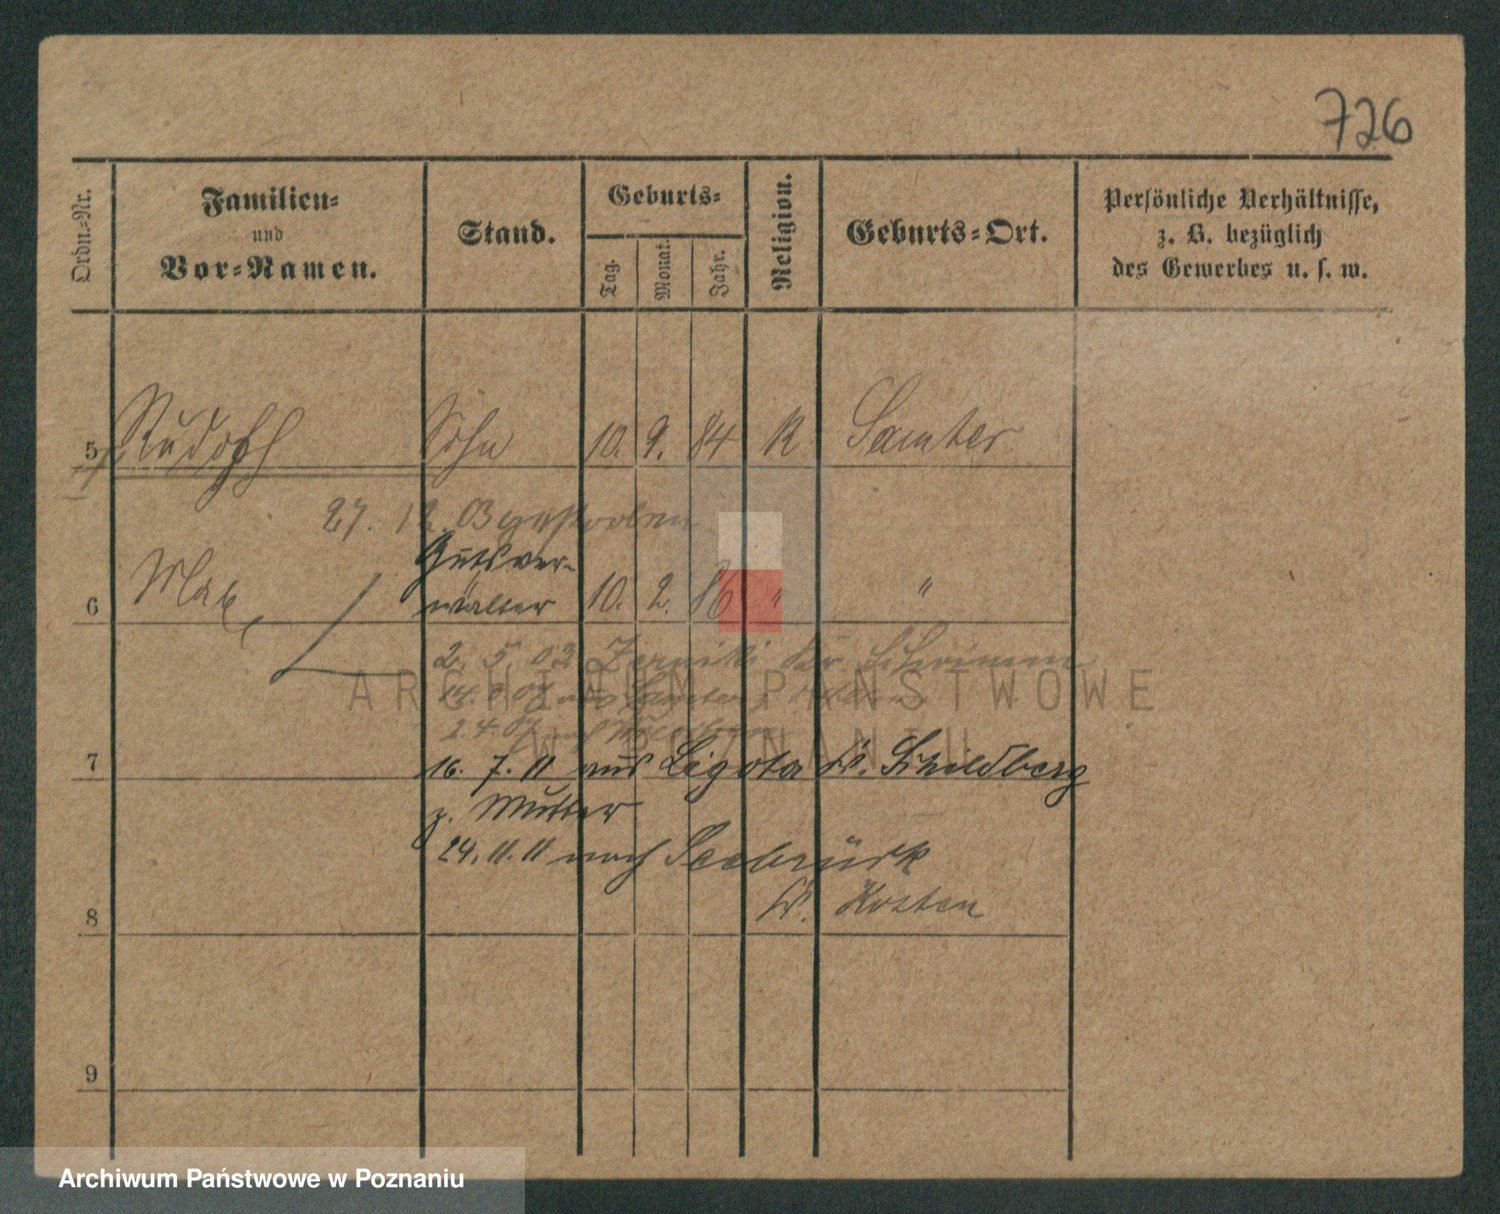 726
Ordn.-Nr.
Familien-
und
Vor-Namen.
Stand.
Geburts-
Tag.
Monat.
Jahr.
Religion.
Geburts-Ort.
Persönliche Verhältnisse,
z. B. bezüglich
des Gewerbes u. s. w.
5 Rudolph Sohn 10. 9. 84 K Samter
27. 12. 03 gestorben
Gutsver-
6 Max walter 10. 2. 86 " "
2. 5. 03 Zerniki Kr. Schrimm
ARCHIWUM PAŃSTWOWE
W POZNANIU
7 16. 7. 11 aus Ligota Kr. Schildberg
z. Mutter
24. 11. 11 nach Seebrück
8 Kr. Kosten
9
Archiwum Państwowe w Poznaniu